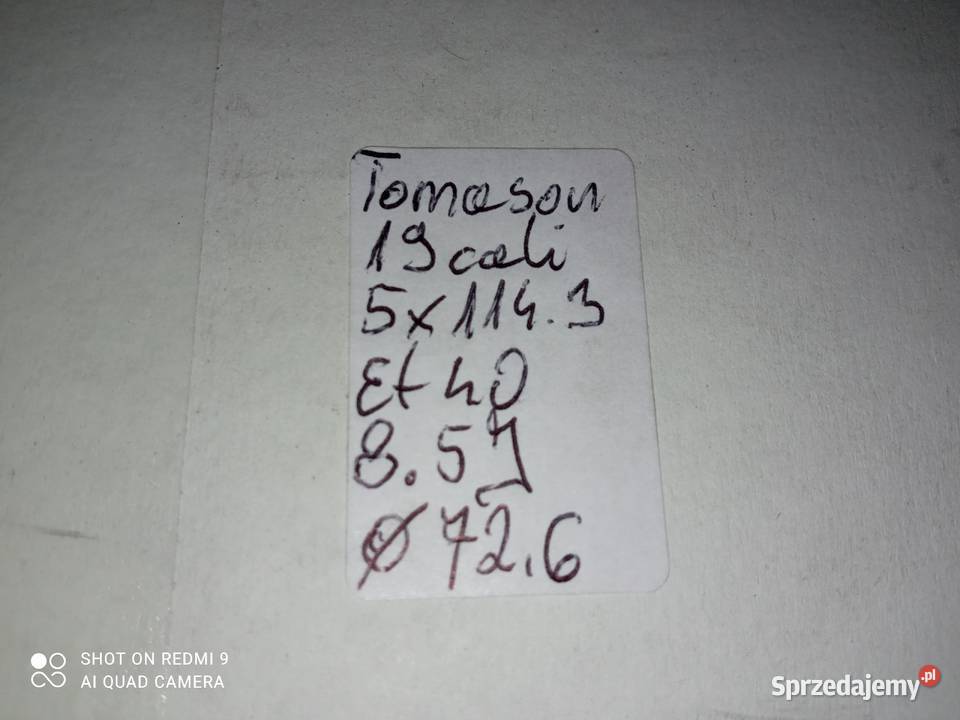 Tomason
19 cali
5x114.3
Et 40
8.5J
Ø 72.6
SHOT ON REDMI 9
AI QUAD CAMERA
Sprzedajemy.pl